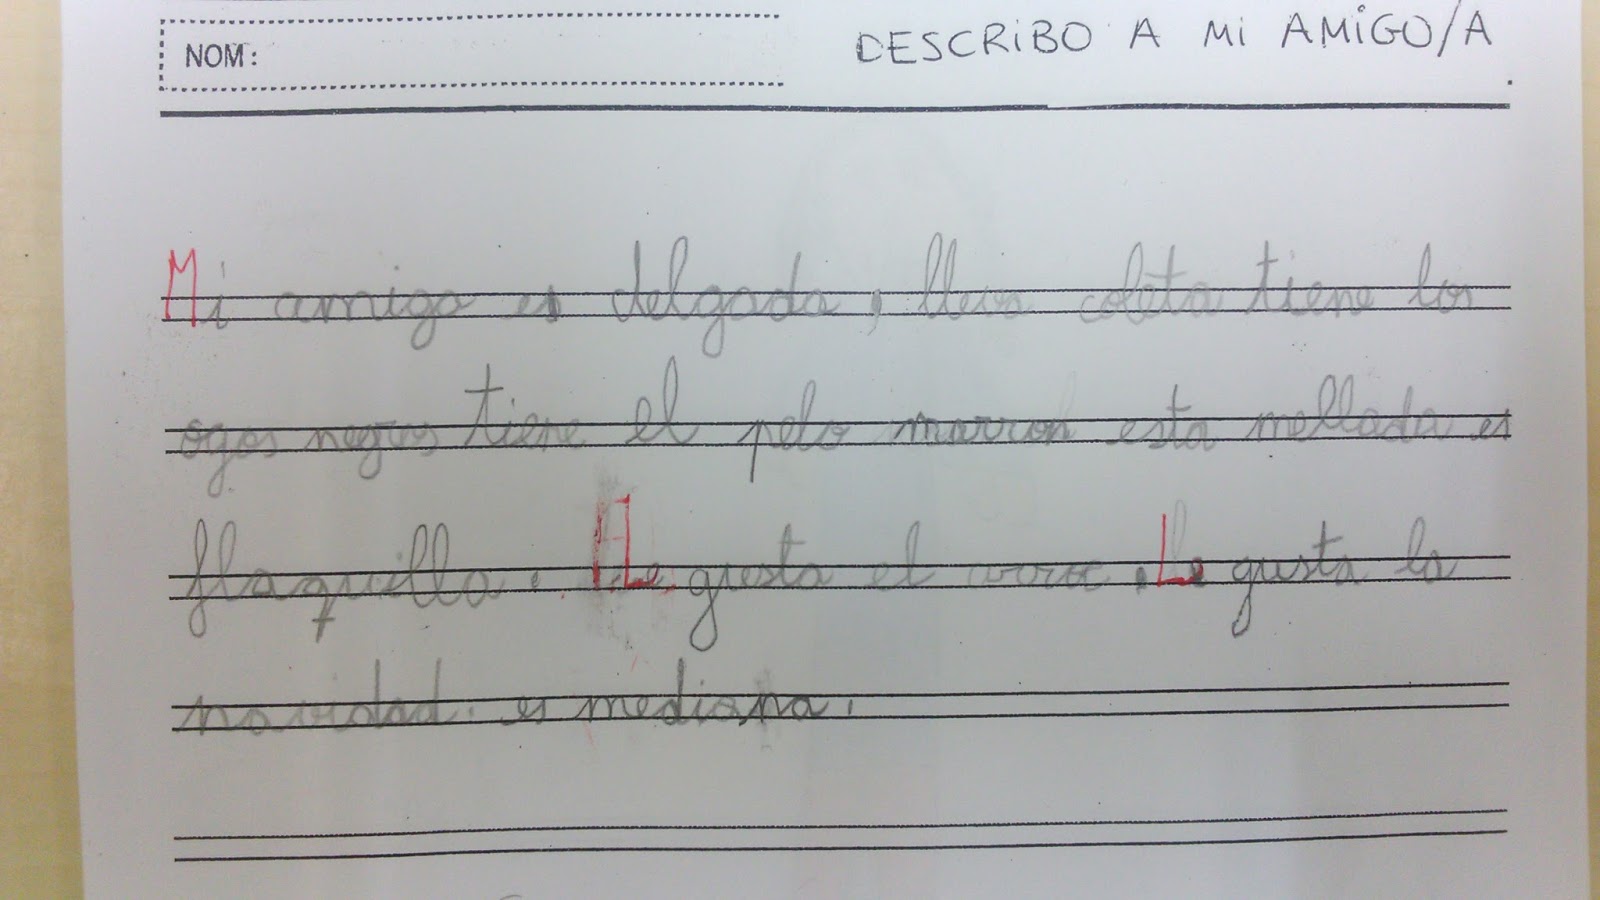 NOM:
DESCRIBO A MI AMIGO/A
Mi amiga es delgada, lleva coleta tiene los
ogos negros tiene el pelo marron esta mellada es
flaquilla. Le gusta el arroz. Le gusta la
navidad. es mediana.